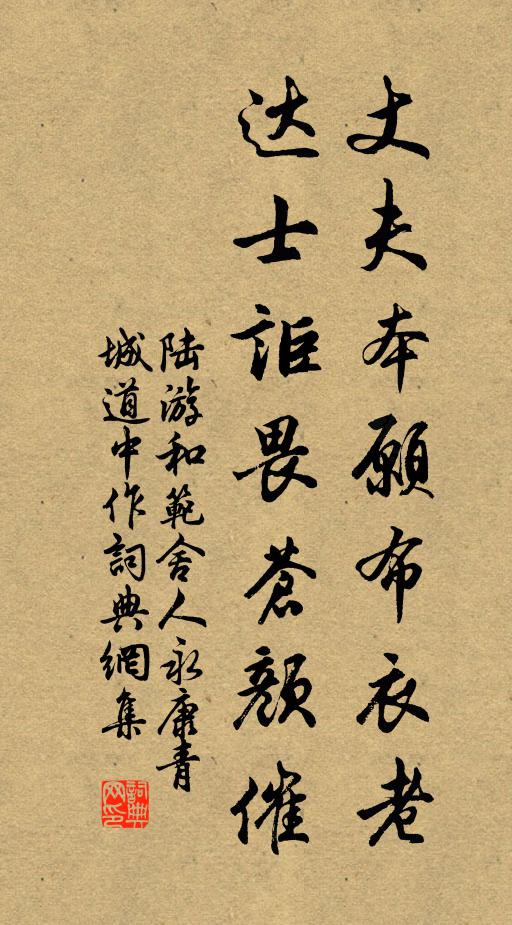 丈夫本願布衣老
达士詎畏蒼顏催
陆游和範舍人永康青
城道中作詞典網集
詞典
网印